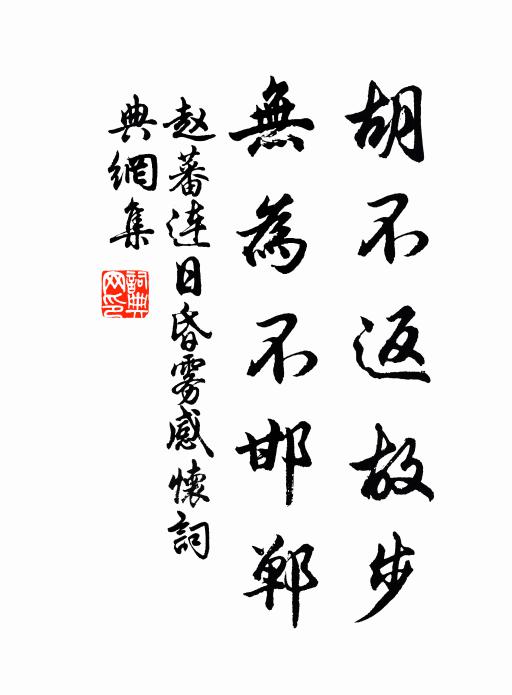 胡不返故步
無為不邯鄲
赵蕃连日昏雾感懷詞
典網集
詞典网印